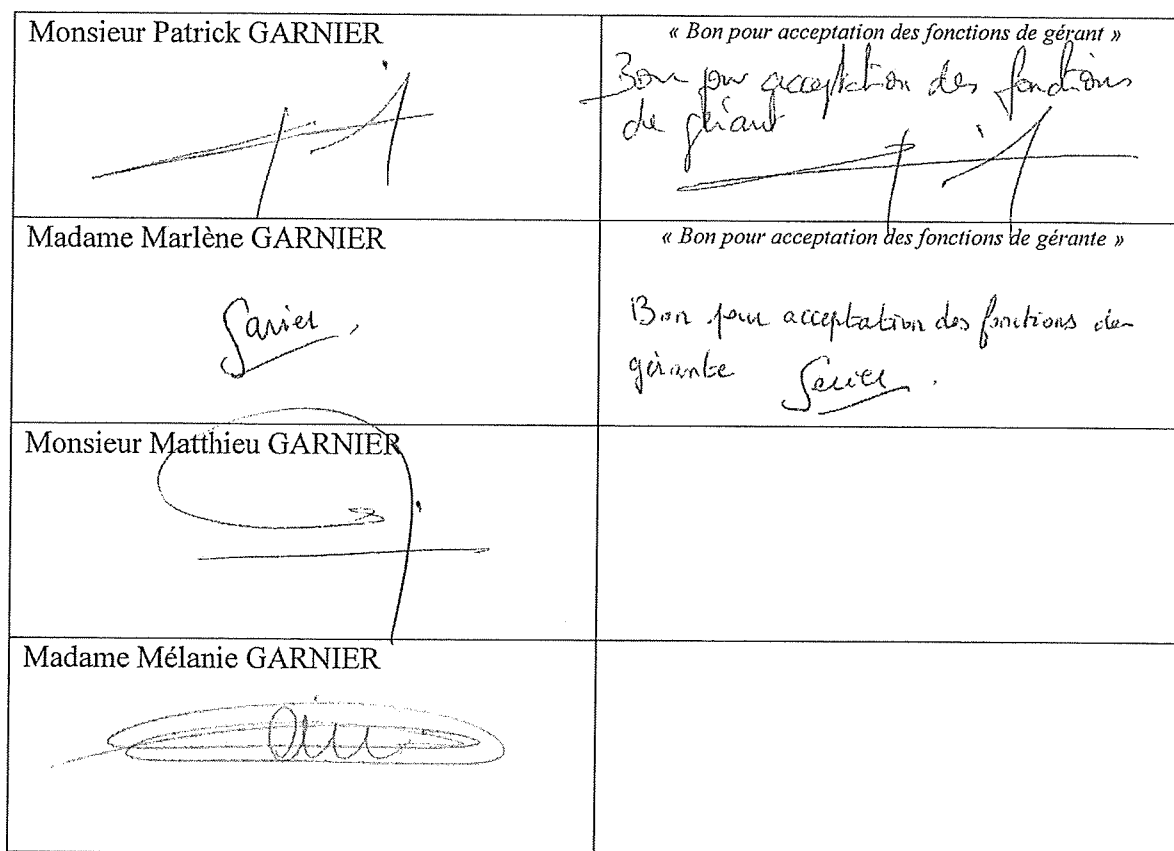 Monsieur Patrick GARNIER
« Bon pour acceptation des fonctions de gérant »
Bon pour acceptation des fonctions
de gérant
Madame Marlène GARNIER
« Bon pour acceptation des fonctions de gérante »
Bon pour acceptation des fonctions de
gérante
Monsieur Matthieu GARNIER
Madame Mélanie GARNIER